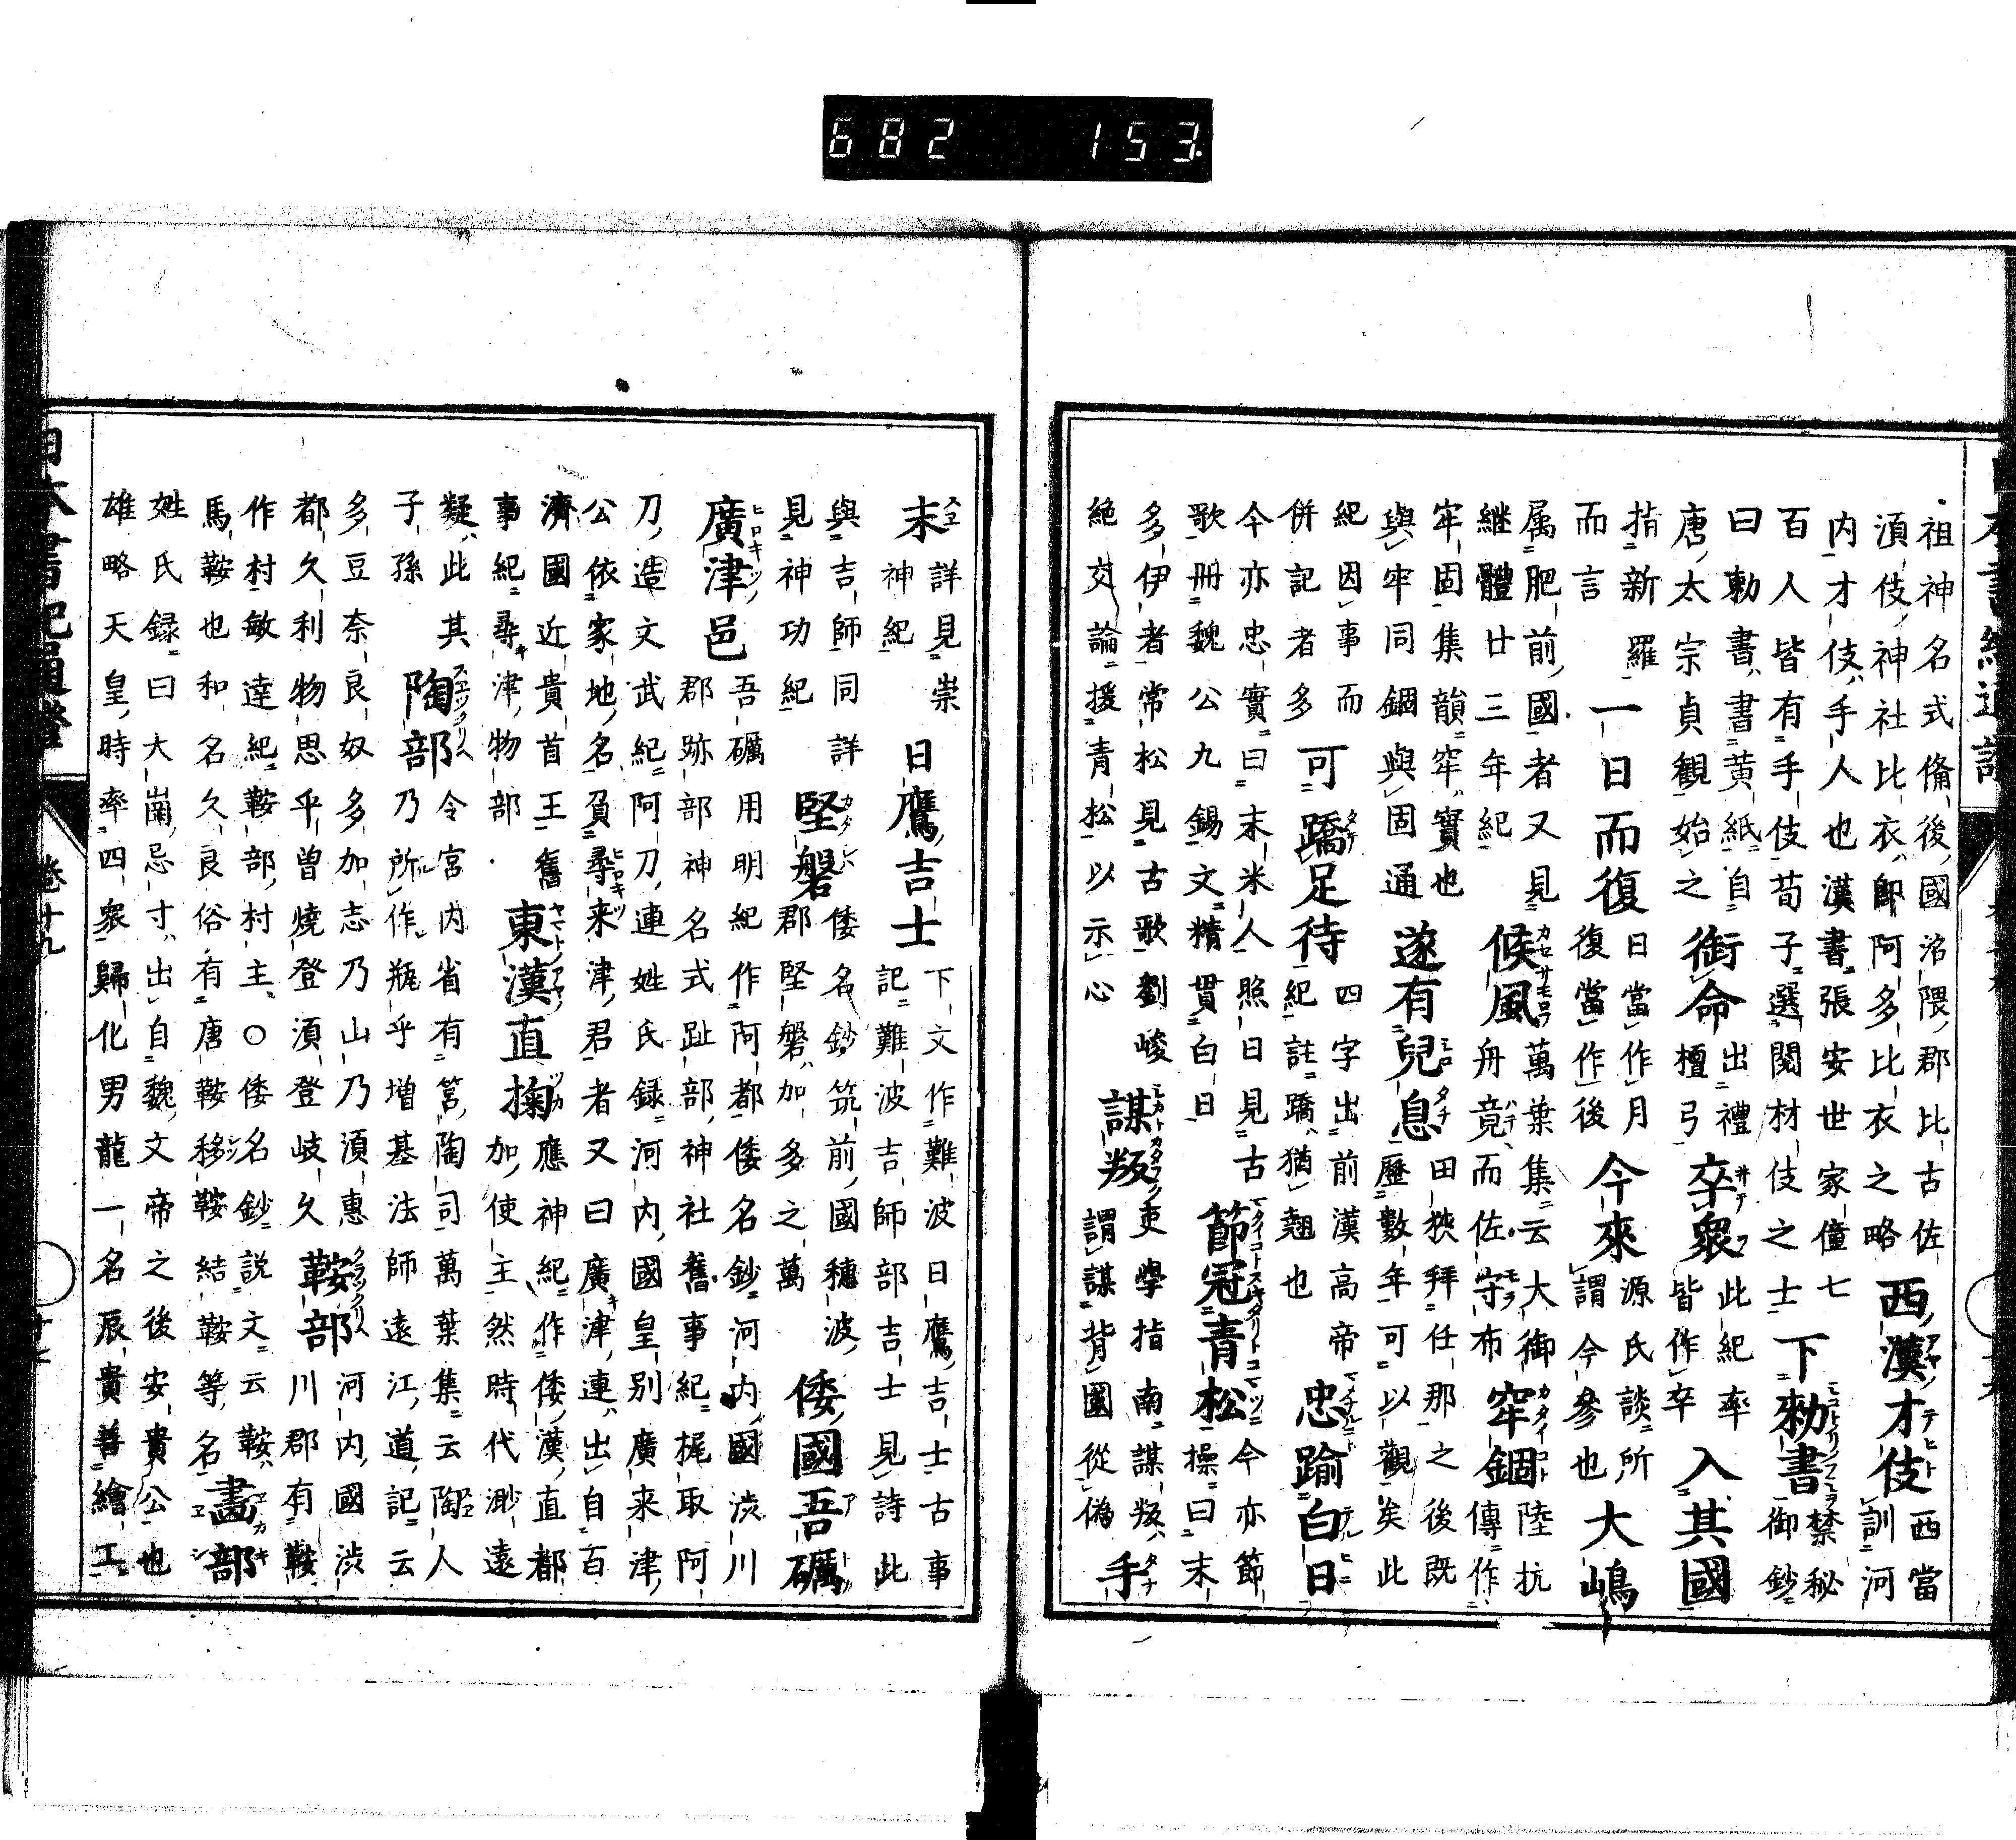 682 153
祖神名式備後國沼隈郡比古佐
湏伎神社比衣即阿多比衣之略
西漢才伎
西當
訓河
内才伎手人也漢書張安世家僮七
百人皆有手伎荀子選閲材伎之士
下勅書
禁秘
御鈔
曰勅書書黄紙自
唐太宗貞觀始之
銜命
出禮
檀弓
卒衆
此紀率
皆作卒
入其國
指新羅
而言
一日而復
日當作月
復當作後
今來
源氏談所
謂今參也
大嶋
属肥前國者又見
継體廿三年紀
候風
萬葉集云大御
舟竟而佐守布
牢錮
陸抗
傳作
牢固集韻牢實也
與牢同錮與固通
遂有兒息
田狭拜任那之後既
歴數年可以觀矣此
紀因事而
併記者多
可蹻足待
四字出前漢高帝
紀註蹻猶翹也
忠踰白日
今亦忠實曰末米人照日見古
歌冊魏公九錫文精貫白日
節冠青松
今亦節
操曰末
多伊者常松見古歌劉峻
絶交論援青松以示心
謀叛
吏學指南謀叛
謂謀背國從偽
手
末
詳見崇
神紀
日鷹吉士
下文作難波日鷹吉士古事
記難波吉師部吉士見詩此
與吉師同詳
見神功紀
堅磐
倭名鈔筑前國穗波
郡堅磐加多之萬
倭國吾礪
廣津邑
吾礪用明紀作阿都倭名鈔河内國渋川
郡跡部神名式趾部神社舊事紀梶取阿
刀造文武紀阿刀連姓氏録河内國皇別廣来津
公依家地名負尋来津君者又曰廣津連出自百
濟國近貴首王舊
事紀尋津物部
東漢直掬
應神紀作倭漢直都
加使主然時代渺遠
疑此其
子孫
陶部
令宮内省有筥陶司萬葉集云陶人
乃所作瓶乎増基法師遠江道記云
多豆奈良奴多加志乃山乃湏惠
都久利物思乎曽燒登湏登岐久
鞍部
河内國渋
川郡有鞍
作村敏達紀鞍部村主〇倭名鈔説文云鞍
馬鞍也和名久良俗有唐鞍移鞍結鞍等名
畵部
姓氏録曰大崗忌寸出自魏文帝之後安貴公也
雄略天皇時率四衆歸化男龍一名辰貴善繪工
日本書紀通證
卷十九